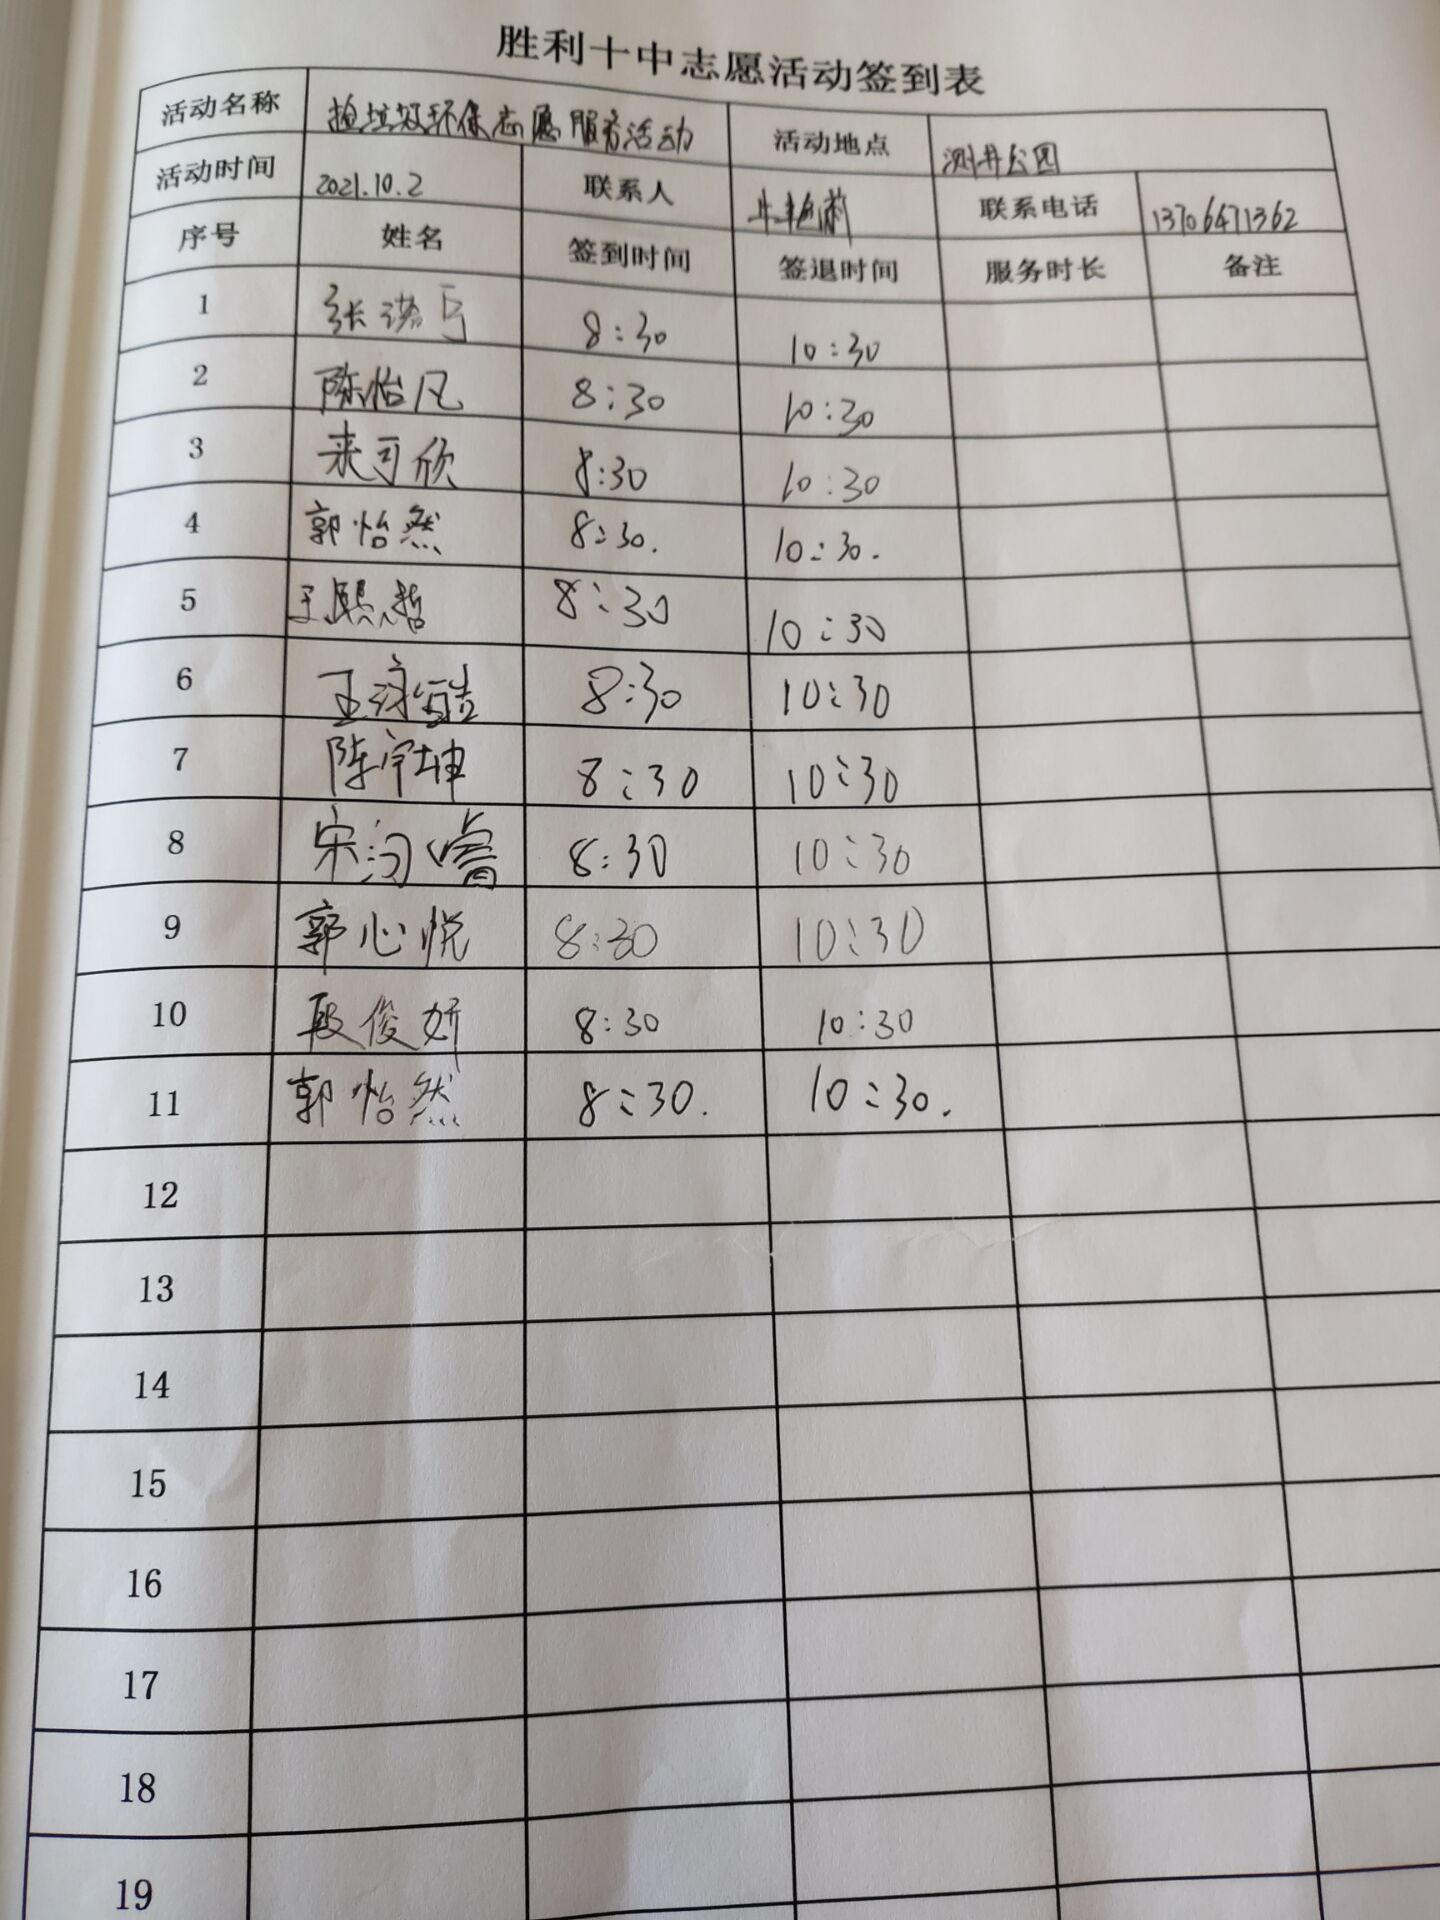 胜利十中志愿活动签到表
活动名称 捡垃圾环保志愿服务活动 活动地点 测井公园
活动时间 2021.10.2 联系人 联系电话 13706471362
序号 姓名 签到时间 签退时间 服务时长 备注
1 张诺 8:30 10:30
2 陈怡凡 8:30 10:30
3 来可欣 8:30 10:30
4 郭怡然 8:30. 10:30.
5 王熙哲 8:30 10:30
6 王 8:30 10:30
7 陈宇坤 8:30 10:30
8 宋汮睿 8:30 10:30
9 郭心悦 8:30 10:30
10 段俊娇 8:30 10:30
11 郭怡然 8:30. 10:30.
12
13
14
15
16
17
18
19